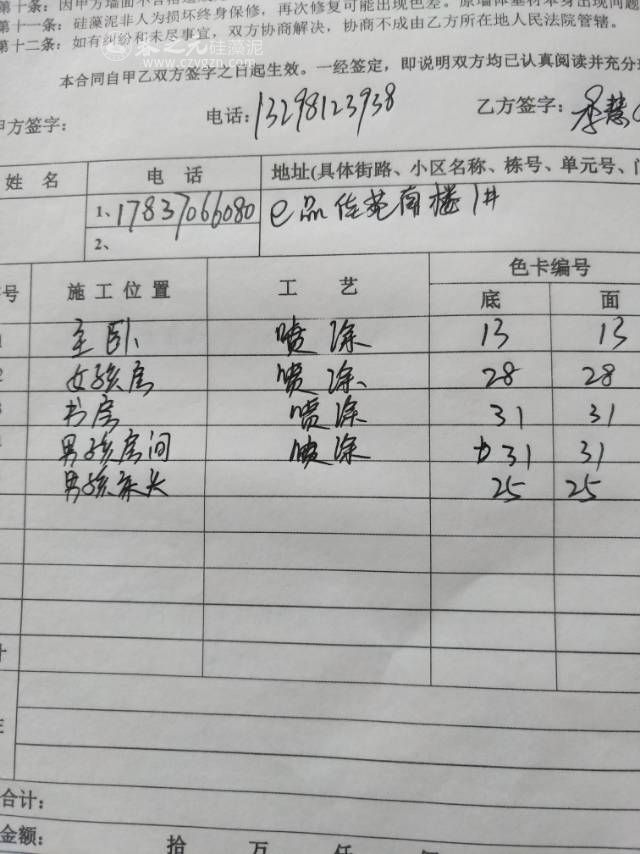 第十条：因甲方墙面不合格造成
第十一条：硅藻泥非人为损坏终身保修，再次修复可能出现色差。原墙体基材本身出现问题
第十二条：如有纠纷和未尽事宜，双方协商解决，协商不成由乙方所在地人民法院管辖。
春之元硅藻泥
www.czygzn.com
本合同自甲乙双方签字之日起生效。一经签定，即说明双方均已认真阅读并充分理
甲方签字： 电话：13298123938 乙方签字：李慧
姓名 电话 地址(具体街路、小区名称、栋号、单元号、门
1、17837066080 e品佳苑南楼1#
2、
序号 施工位置 工艺 色卡编号
底 面
1 主卧 喷涂 13 13
2 女孩房 喷涂 28 28
3 书房 喷涂 31 31
4 男孩房间 喷涂 31 31
男孩床头 25 25
计
注
合计：
金额： 拾 万 仟